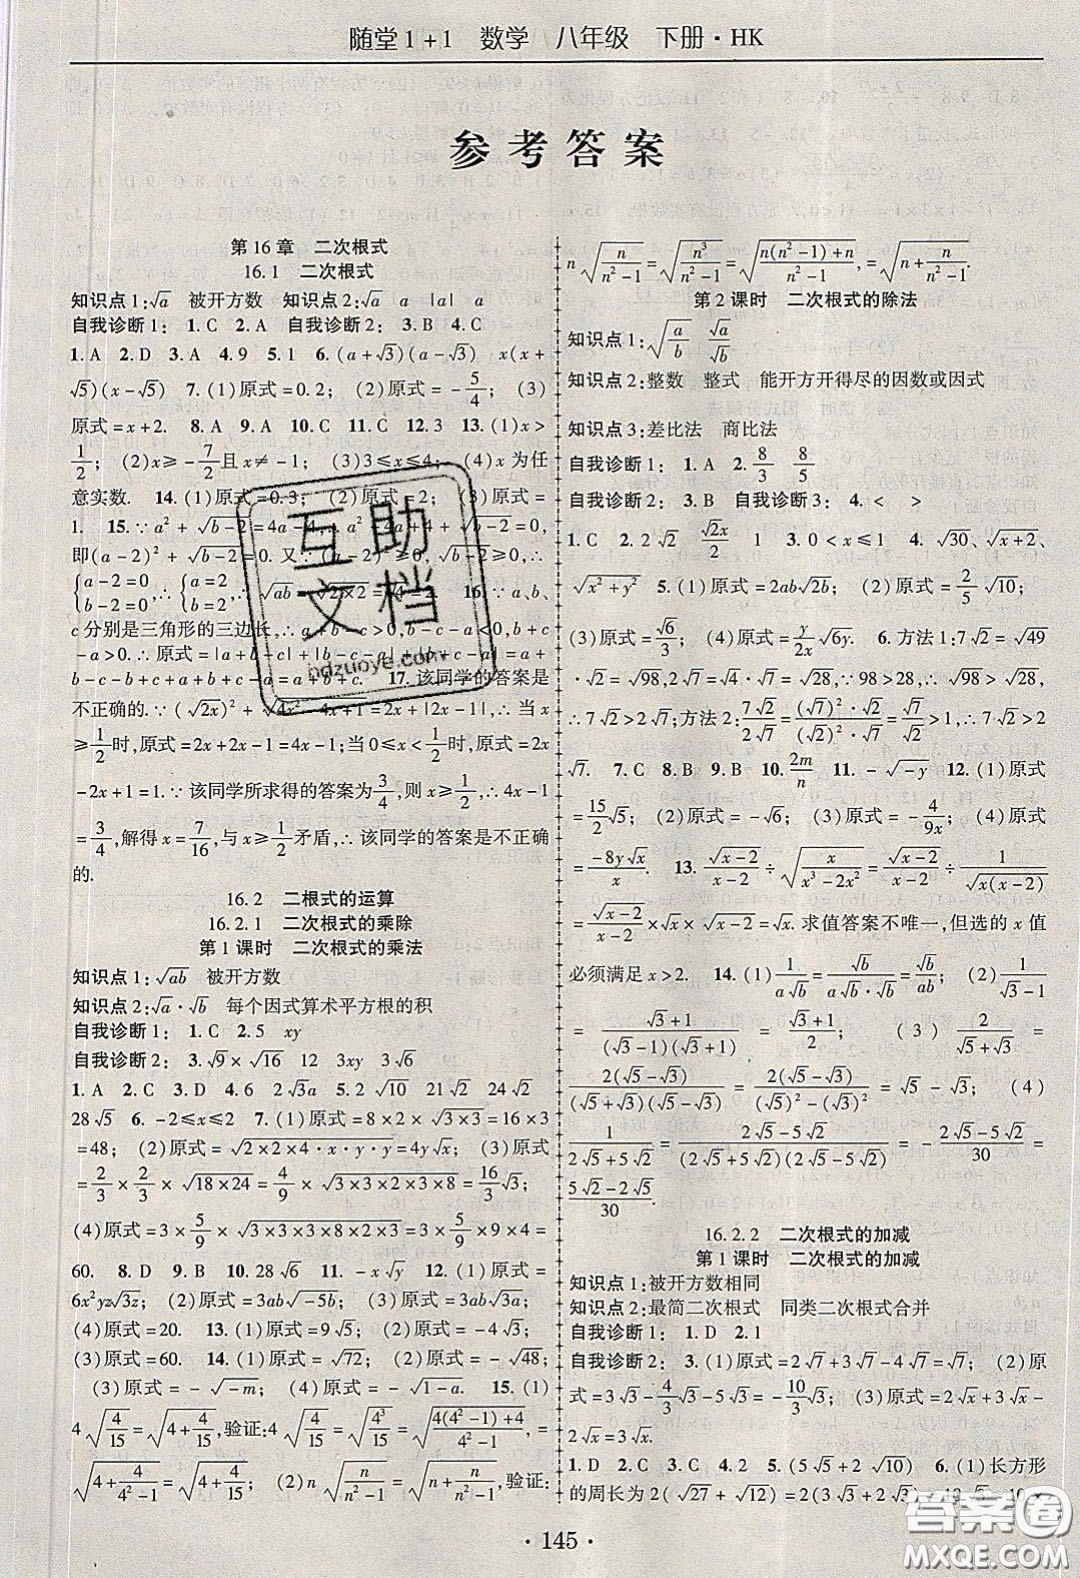 随堂1+1 数学 八年级 下册·HK
参考答案
第16章 二次根式
16.1 二次根式
知识点1:√a 被开方数 知识点2:√a a |a| a
自我诊断1: 1.C 2.A 自我诊断2: 3.B 4.C
1.A 2.D 3.A 4.9 5.1 6.(a+√3)(a-√3) x(x+
√5)(x-√5) 7.(1)原式=0.2; (2)原式=-5/4; (3)
原式=x+2. 8.A 9.A 10.C 11.C 12.3 13.(1)x>
1/2; (2)x≥-7/2且x≠-1; (3)3≤x≤4; (4)x为任
意实数. 14.(1)原式=0.3; (2)原式=2; (3)原式=
1. 15.∵a²+√(b-2)=4a-4,∴a²-4a+4+√(b-2)=0,
即(a-2)²+√(b-2)=0.又∵(a-2)²≥0,√(b-2)≥0,∴
{a-2=0, b-2=0 ∴{a=2, b=2 ∴√(ab)=√(2×2)=√4=2. 16.∵a、b、
c分别是三角形的三边长,∴a+b-c>0,b-c-a<0,b+c
-a>0.∴原式=|a+b-c|+|b-c-a|+|b+c-a|=a+
b-c-b+c+a+b+c-a=a+b+c. 17.该同学的答案是
不正确的.∵(√(2x))²+√(4x²-4x+1)=2x+|2x-1|,当x
≥1/2时,原式=2x+2x-1=4x-1;当0≤x<1/2时,原式=2x
-2x+1=1.∵该同学所求得的答案为3/4,则x≥1/2,∴4x-1
=3/4,解得x=7/16,与x≥1/2矛盾,∴该同学的答案是不正确
的.
16.2 二根式的运算
16.2.1 二次根式的乘除
第1课时 二次根式的乘法
知识点1:√(ab) 被开方数
知识点2:√a·√b 每个因式算术平方根的积
自我诊断1: 1.C 2.5 xy
自我诊断2: 3.√9×√16 12 3xy 3√6
1.A 2.C 3.D 4.6 2√3a 5.2√10 21√2 24√2
28√5 6.-2≤x≤2 7.(1)原式=8×2×√(3×3)=16×3
=48; (2)原式=√(2×2×4·x·y·y)=4y√x; (3)原式
=2/3×2/3×√(18×24)=4/9×√(3×3×2×3×8)=16/3√3;
(4)原式=3×5/9×√(3×3×3×3×2×2)=3×5/9×9×4=
60. 8.D 9.B 10.28√6 11.-x√y 12.(1)原式=
6x²yz√(3z); (2)原式=3ab√(-5b); (3)原式=3ab√(3a);
(4)原式=20. 13.(1)原式=9√5; (2)原式=-4√3;
(3)原式=60. 14.(1)原式=√72; (2)原式=-√48;
(3)原式=-√(-m); (4)原式=-√(1-a). 15.(1)
4√(4/15)=√(4+4/15),验证:4√(4/15)=√(4³/15)=√((4(4²-1)+4)/(4²-1))=
√(4+4/(4²-1))=√(4+4/15); (2)n√(n/(n²-1))=√(n+n/(n²-1)),验证:
n√(n/(n²-1))=√(n³/(n²-1))=√((n(n²-1)+n)/(n²-1)),=√(n+n/(n²-1)).
第2课时 二次根式的除法
知识点1:√(a/b) √a/√b
知识点2:整数 整式 能开方开得尽的因数或因式
知识点3:差比法 商比法
自我诊断1: 1.A 2.8/3 8/5
自我诊断2: 3.B 自我诊断3: 4.< >
1.C 2.2√2 √(2x)/2 1 3.0<x≤1 4.√30、√(x+2)、
√(x²+y²) 5.(1)原式=2ab√(2b); (2)原式=2/5√10;
(3)原式=√6/3; (4)原式=y/2x√(6y). 6.方法1:7√2=√49
·√2=√98,2√7=√4·√7=√28,∵98>28,∴√98>√28,
∴7√2>2√7;方法2:7√2/2√7=(√7)²·√2/(√2)²·√7=√7/√2>1,∴7√2>2
√7. 7.C 8.B 9.B 10.2m/n 11.-√(-y) 12.(1)原式
=15/2√5; (2)原式=-√6; (3)原式=-4/9x; (4)原式=
-8y√x/x. 13.√(x-2)/(x-2)÷√(x/(x³-2x²))=√(x-2)/(x-2)÷1/√(x(x-2))
=√(x-2)/(x-2)×√x×√(x-2)=√x.求值答案不唯一,但选的x值
必须满足x>2. 14.(1)1/(a√b)=√b/(a√b·√b)=√b/ab; (2)1/(√3-1)
=(√3+1)/((√3-1)(√3+1))=(√3+1)/2; (3)2/(√5+√3)=
2(√5-√3)/((√5+√3)(√5-√3))=2(√5-√3)/((√5)²-(√3)²)=√5-√3; (4)
1/(2√5+5√2)=(2√5-5√2)/((2√5+5√2)(2√5-5√2))=-(2√5-5√2)/30=
(5√2-2√5)/30.
16.2.2 二次根式的加减
第1课时 二次根式的加减
知识点1:被开方数相同
知识点2:最简二次根式 同类二次根式合并
自我诊断1: 1.D 2.1
自我诊断2: 3.(1)原式=2√7+3√7-4√7=√7; (2)原
式=3√3-4/3√3-5√3=-10/3√3; (3)原式=2√x+3√x-
2√x=3√x.
1.D 2.C 3.C 4.2 5.(5√5+2√10) 6.(1)长方形
的周长为2(√27+√12)=2(3√3+2
· 145 ·
互助文档
hdzuoye.com
答案圈
MXQE.COM